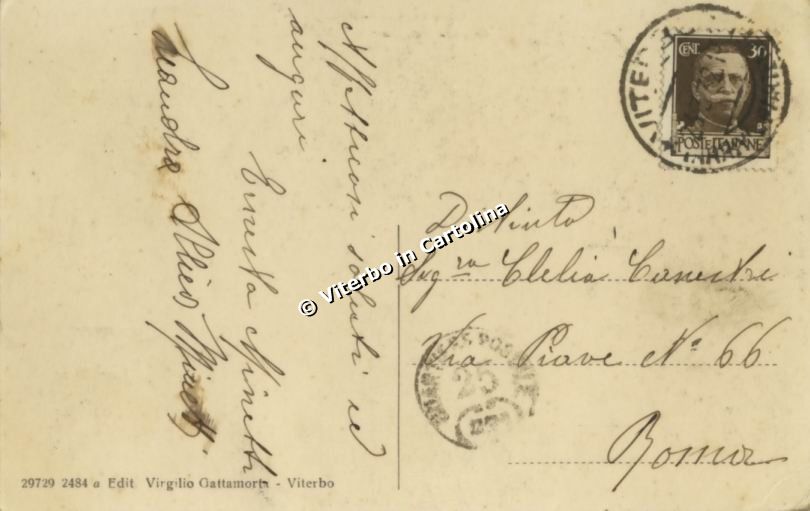 Affettuosi saluti ed
auguri
Ernesta Minetti
Leandra
CENT. 30
POSTE ITALIANE
VITER
Distinta
Sig.ra Clelia Canestri
Via Piave No 66
Roma
© Viterbo in Cartolina
29729 2484 a Edit Virgilio Gattamorta - Viterbo